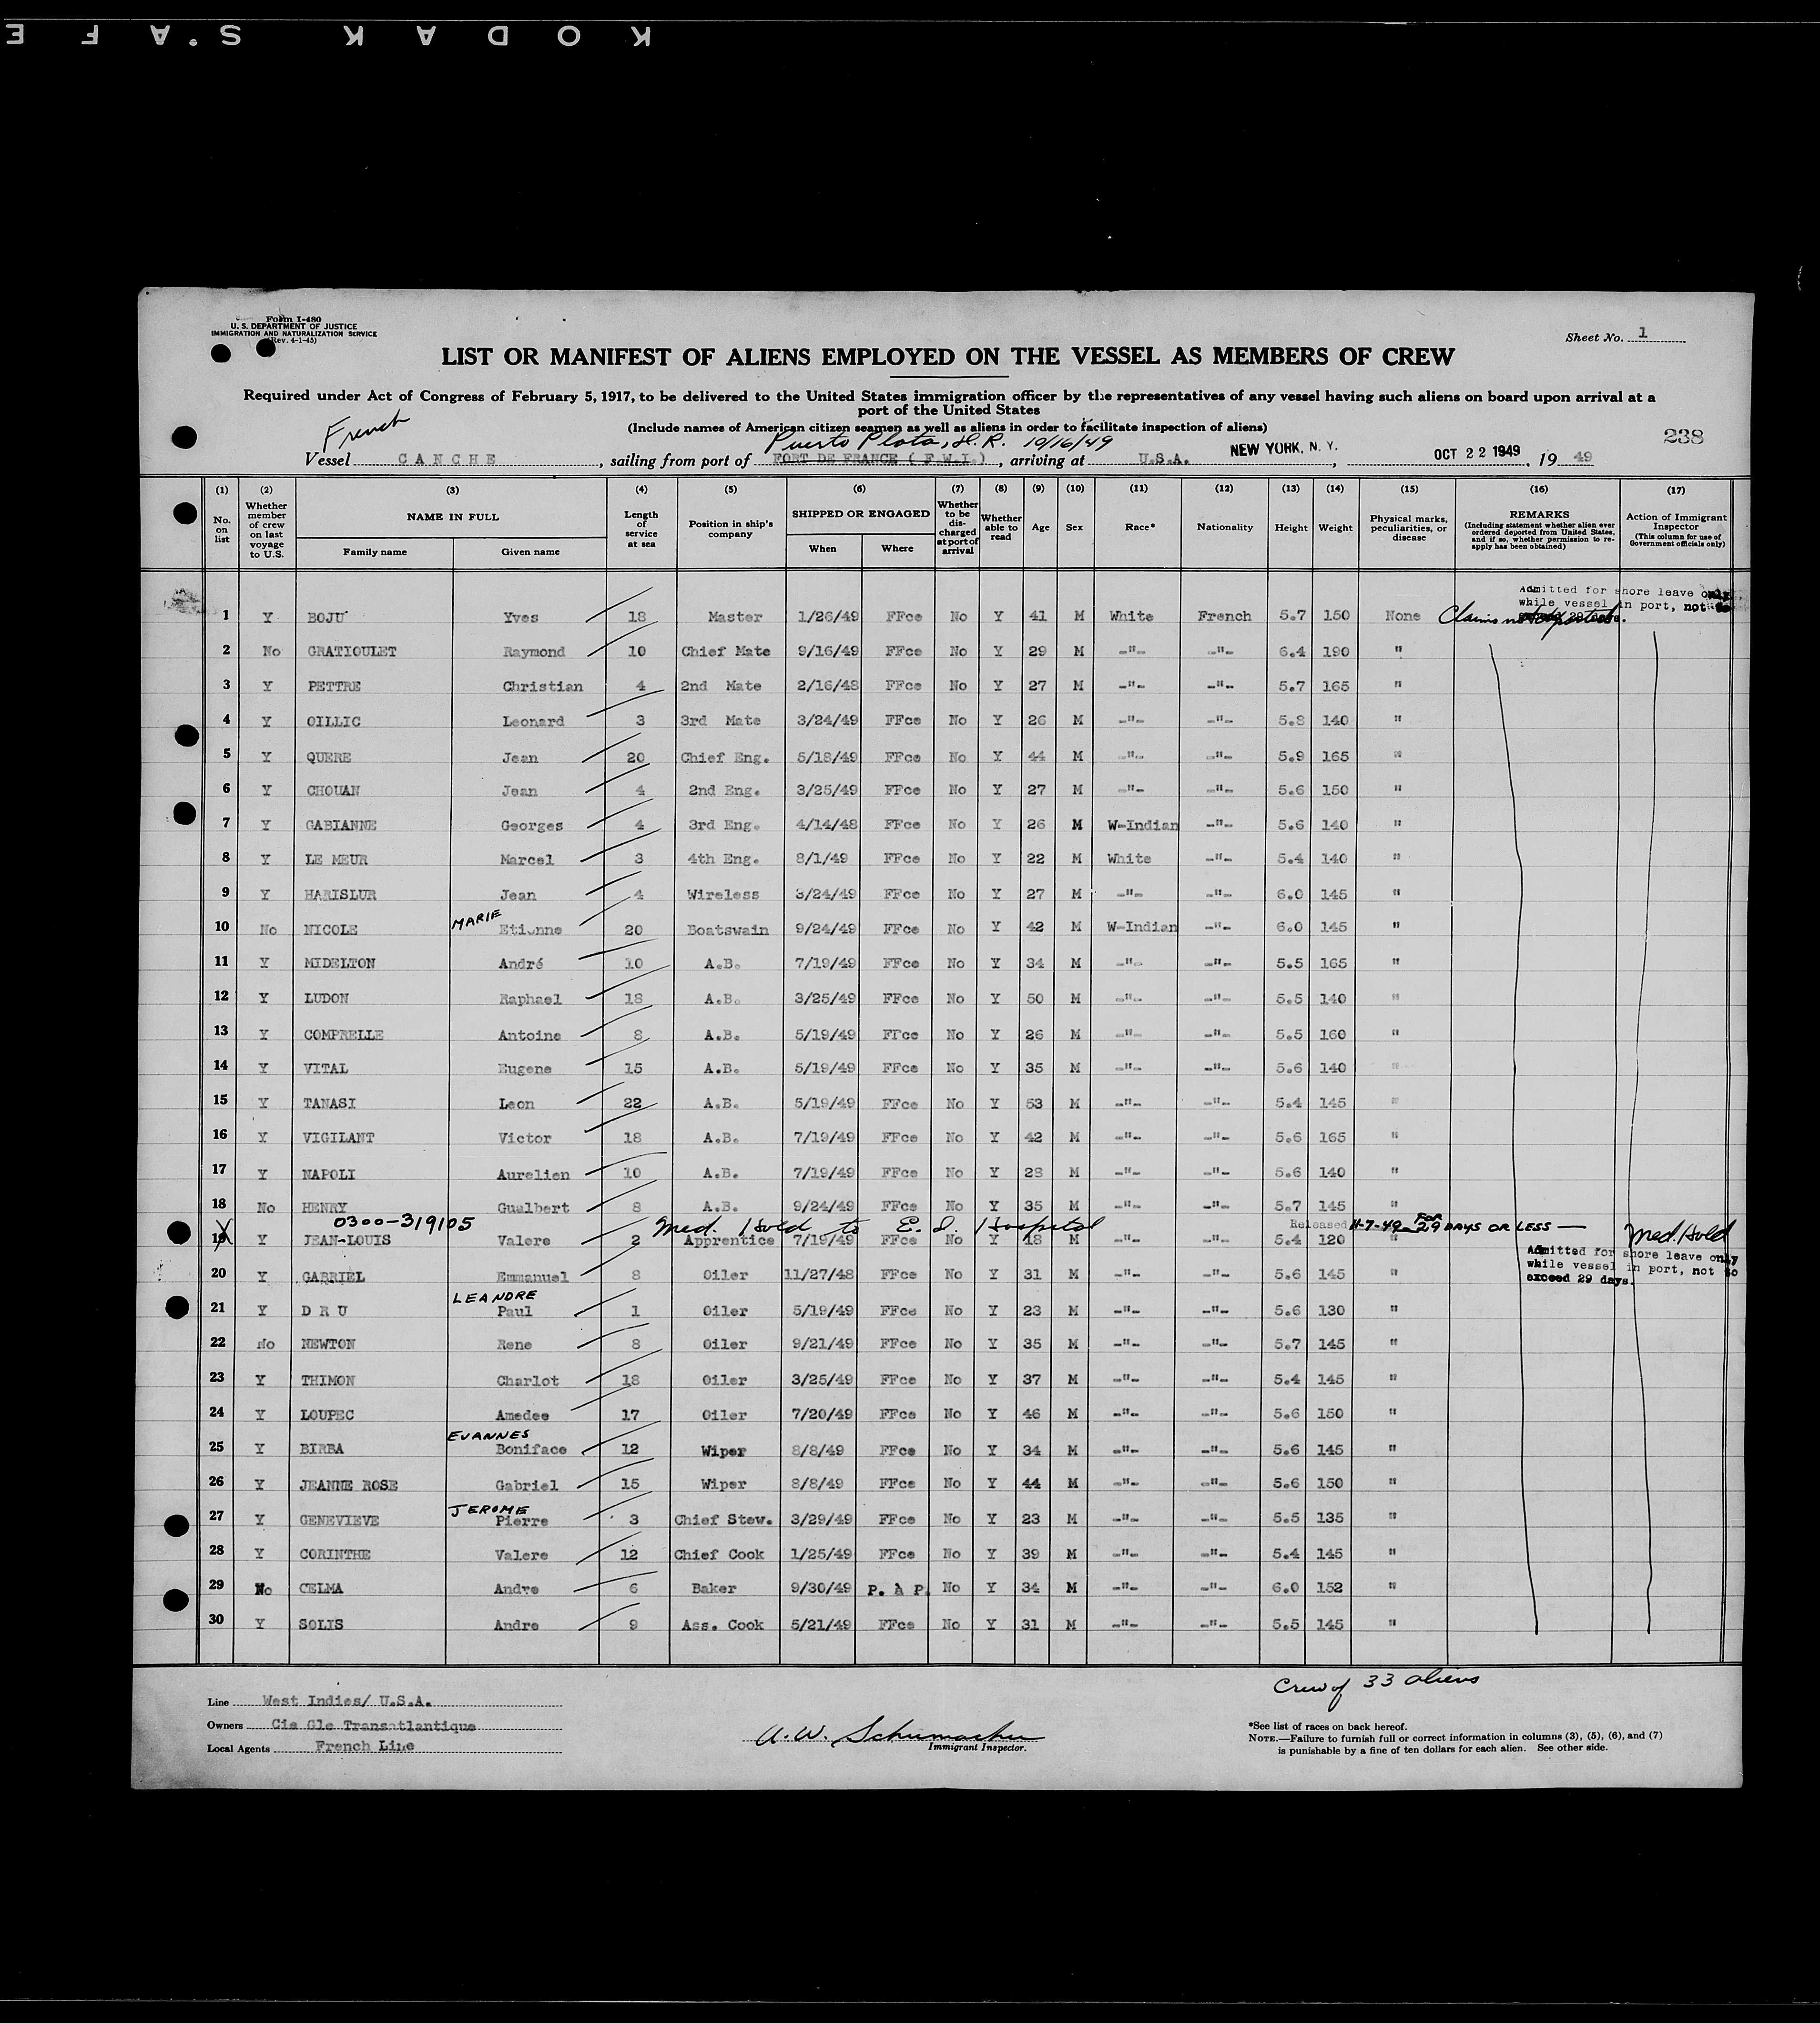 KODAK S.A F E
Form I-480
U. S. DEPARTMENT OF JUSTICE
IMMIGRATION AND NATURALIZATION SERVICE
(Rev. 4-1-45)
Sheet No. 1
LIST OR MANIFEST OF ALIENS EMPLOYED ON THE VESSEL AS MEMBERS OF CREW
Required under Act of Congress of February 5, 1917, to be delivered to the United States immigration officer by the representatives of any vessel having such aliens on board upon arrival at a
port of the United States
(Include names of American citizen seamen as well as aliens in order to facilitate inspection of aliens)
French
Puerto Plata, D.R. 10/16/49
238
Vessel CANCHE, sailing from port of FORT DE FRANCE ( F.W.I.), arriving at U.S.A. NEW YORK, N. Y., OCT 22 1949, 19 49
(1) No. on list
(2) Whether member of crew on last voyage to U.S.
(3) NAME IN FULL Family name Given name
(4) Length of service at sea
(5) Position in ship's company
(6) SHIPPED OR ENGAGED When Where
(7) Whether to be discharged at port of arrival
(8) Whether able to read
(9) Age
(10) Sex
(11) Race*
(12) Nationality
(13) Height
(14) Weight
(15) Physical marks, peculiarities, or disease
(16) REMARKS (Including statement whether alien ever ordered deported from United States, and if so, whether permission to reapply has been obtained)
(17) Action of Immigrant Inspector (This column for use of Government officials only)
Admitted for shore leave only
while vessel in port, not to
1 Y BOJU Yves 18 Master 1/26/49 FFce No Y 41 M White French 5.7 150 None Claims not deported
2 No GRATIOULET Raymond 10 Chief Mate 9/16/49 FFce No Y 29 M -"- -"- 6.4 190 "
3 Y PETTRE Christian 4 2nd Mate 2/16/48 FFce No Y 27 M -"- -"- 5.7 165 "
4 Y OILLIC Leonard 3 3rd Mate 3/24/49 FFce No Y 26 M -"- -"- 5.8 140 "
5 Y QUERE Jean 20 Chief Eng. 5/18/49 FFce No Y 44 M -"- -"- 5.9 165 "
6 Y CHOUAN Jean 4 2nd Eng. 3/25/49 FFce No Y 27 M -"- -"- 5.6 150 "
7 Y GABIANNE Georges 4 3rd Eng. 4/14/48 FFce No Y 26 M W-Indian -"- 5.6 140 "
8 Y LE MEUR Marcel 3 4th Eng. 8/1/49 FFce No Y 22 M White -"- 5.4 140 "
9 Y HARISLUR Jean 4 Wireless 3/24/49 FFce No Y 27 M -"- -"- 6.0 145 "
10 No NICOLE MARIE Etienne 20 Boatswain 9/24/49 FFce No Y 42 M W-Indian -"- 6.0 145 "
11 Y MIDELTON André 10 A.B. 7/19/49 FFce No Y 34 M -"- -"- 5.5 165 "
12 Y LUDON Raphael 18 A.B. 3/25/49 FFce No Y 50 M -"- -"- 5.5 140 "
13 Y COMPRELLE Antoine 8 A.B. 5/19/49 FFce No Y 26 M -"- -"- 5.5 160 "
14 Y VITAL Eugene 15 A.B. 5/19/49 FFce No Y 35 M -"- -"- 5.6 140 "
15 Y TANASI Leon 22 A.B. 5/19/49 FFce No Y 53 M -"- -"- 5.4 145 "
16 Y VIGILANT Victor 18 A.B. 7/19/49 FFce No Y 42 M -"- -"- 5.6 165 "
17 Y NAPOLI Aurelien 10 A.B. 7/19/49 FFce No Y 28 M -"- -"- 5.6 140 "
18 No HENRY Gualbert 8 A.B. 9/24/49 FFce No Y 35 M -"- -"- 5.7 145 "
0300-319105 Med. Hold to E. I. Hospital Released 11-7-49 FOR 29 DAYS OR LESS —
19 Y JEAN-LOUIS Valere 2 Apprentice 7/19/49 FFce No Y 18 M -"- -"- 5.4 120 " Med. Hold
Admitted for shore leave only
while vessel in port, not to
exceed 29 days.
20 Y GABRIEL Emmanuel 8 Oiler 11/27/48 FFce No Y 31 M -"- -"- 5.6 145 "
21 Y D R U LEANDRE Paul 1 Oiler 5/19/49 FFce No Y 23 M -"- -"- 5.6 130 "
22 No NEWTON Rene 8 Oiler 9/21/49 FFce No Y 35 M -"- -"- 5.7 145 "
23 Y THIMON Charlot 18 Oiler 3/25/49 FFce No Y 37 M -"- -"- 5.4 145 "
24 Y LOUPEC Amedee 17 Oiler 7/20/49 FFce No Y 46 M -"- -"- 5.6 150 "
25 Y BIRBA EVANNES Boniface 12 Wiper 8/8/49 FFce No Y 34 M -"- -"- 5.6 145 "
26 Y JEANNE ROSE Gabriel 15 Wiper 8/8/49 FFce No Y 44 M -"- -"- 5.6 150 "
27 Y GENEVIEVE JEROME Pierre 3 Chief Stew. 3/29/49 FFce No Y 23 M -"- -"- 5.5 135 "
28 Y CORINTHE Valere 12 Chief Cook 1/25/49 FFce No Y 39 M -"- -"- 5.4 145 "
29 No CELMA Andre 6 Baker 9/30/49 P. à P. No Y 34 M -"- -"- 6.0 152 "
30 Y SOLIS Andre 9 Ass. Cook 5/21/49 FFce No Y 31 M -"- -"- 5.5 145 "
Crew of 33 aliens
Line West Indies/ U.S.A.
Owners Cie Gle Transatlantique
Local Agents French Line
A. W. Schumacher
Immigrant Inspector.
*See list of races on back hereof.
NOTE.—Failure to furnish full or correct information in columns (3), (5), (6), and (7)
is punishable by a fine of ten dollars for each alien. See other side.